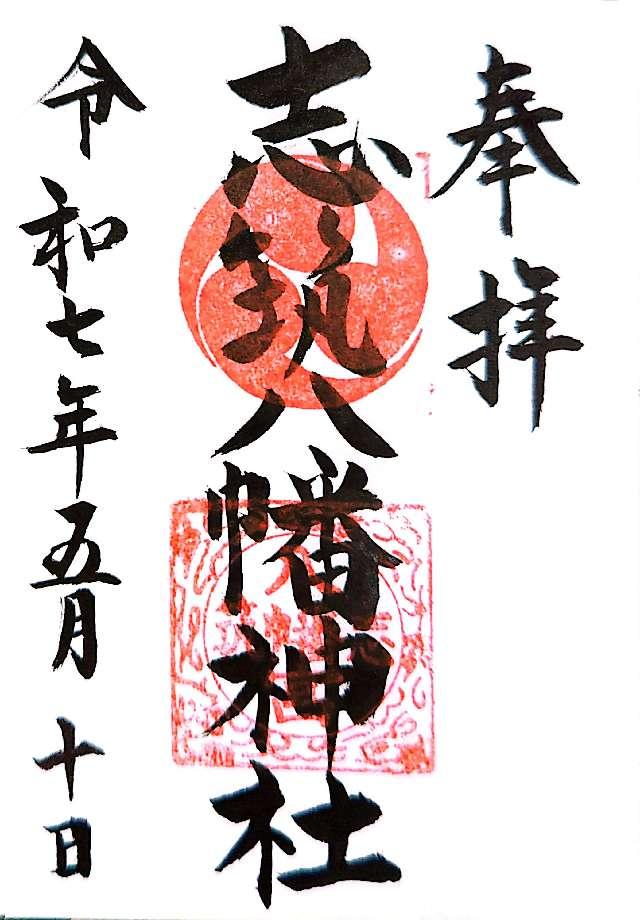 奉拝
志筑八幡神社
令和七年五月十日